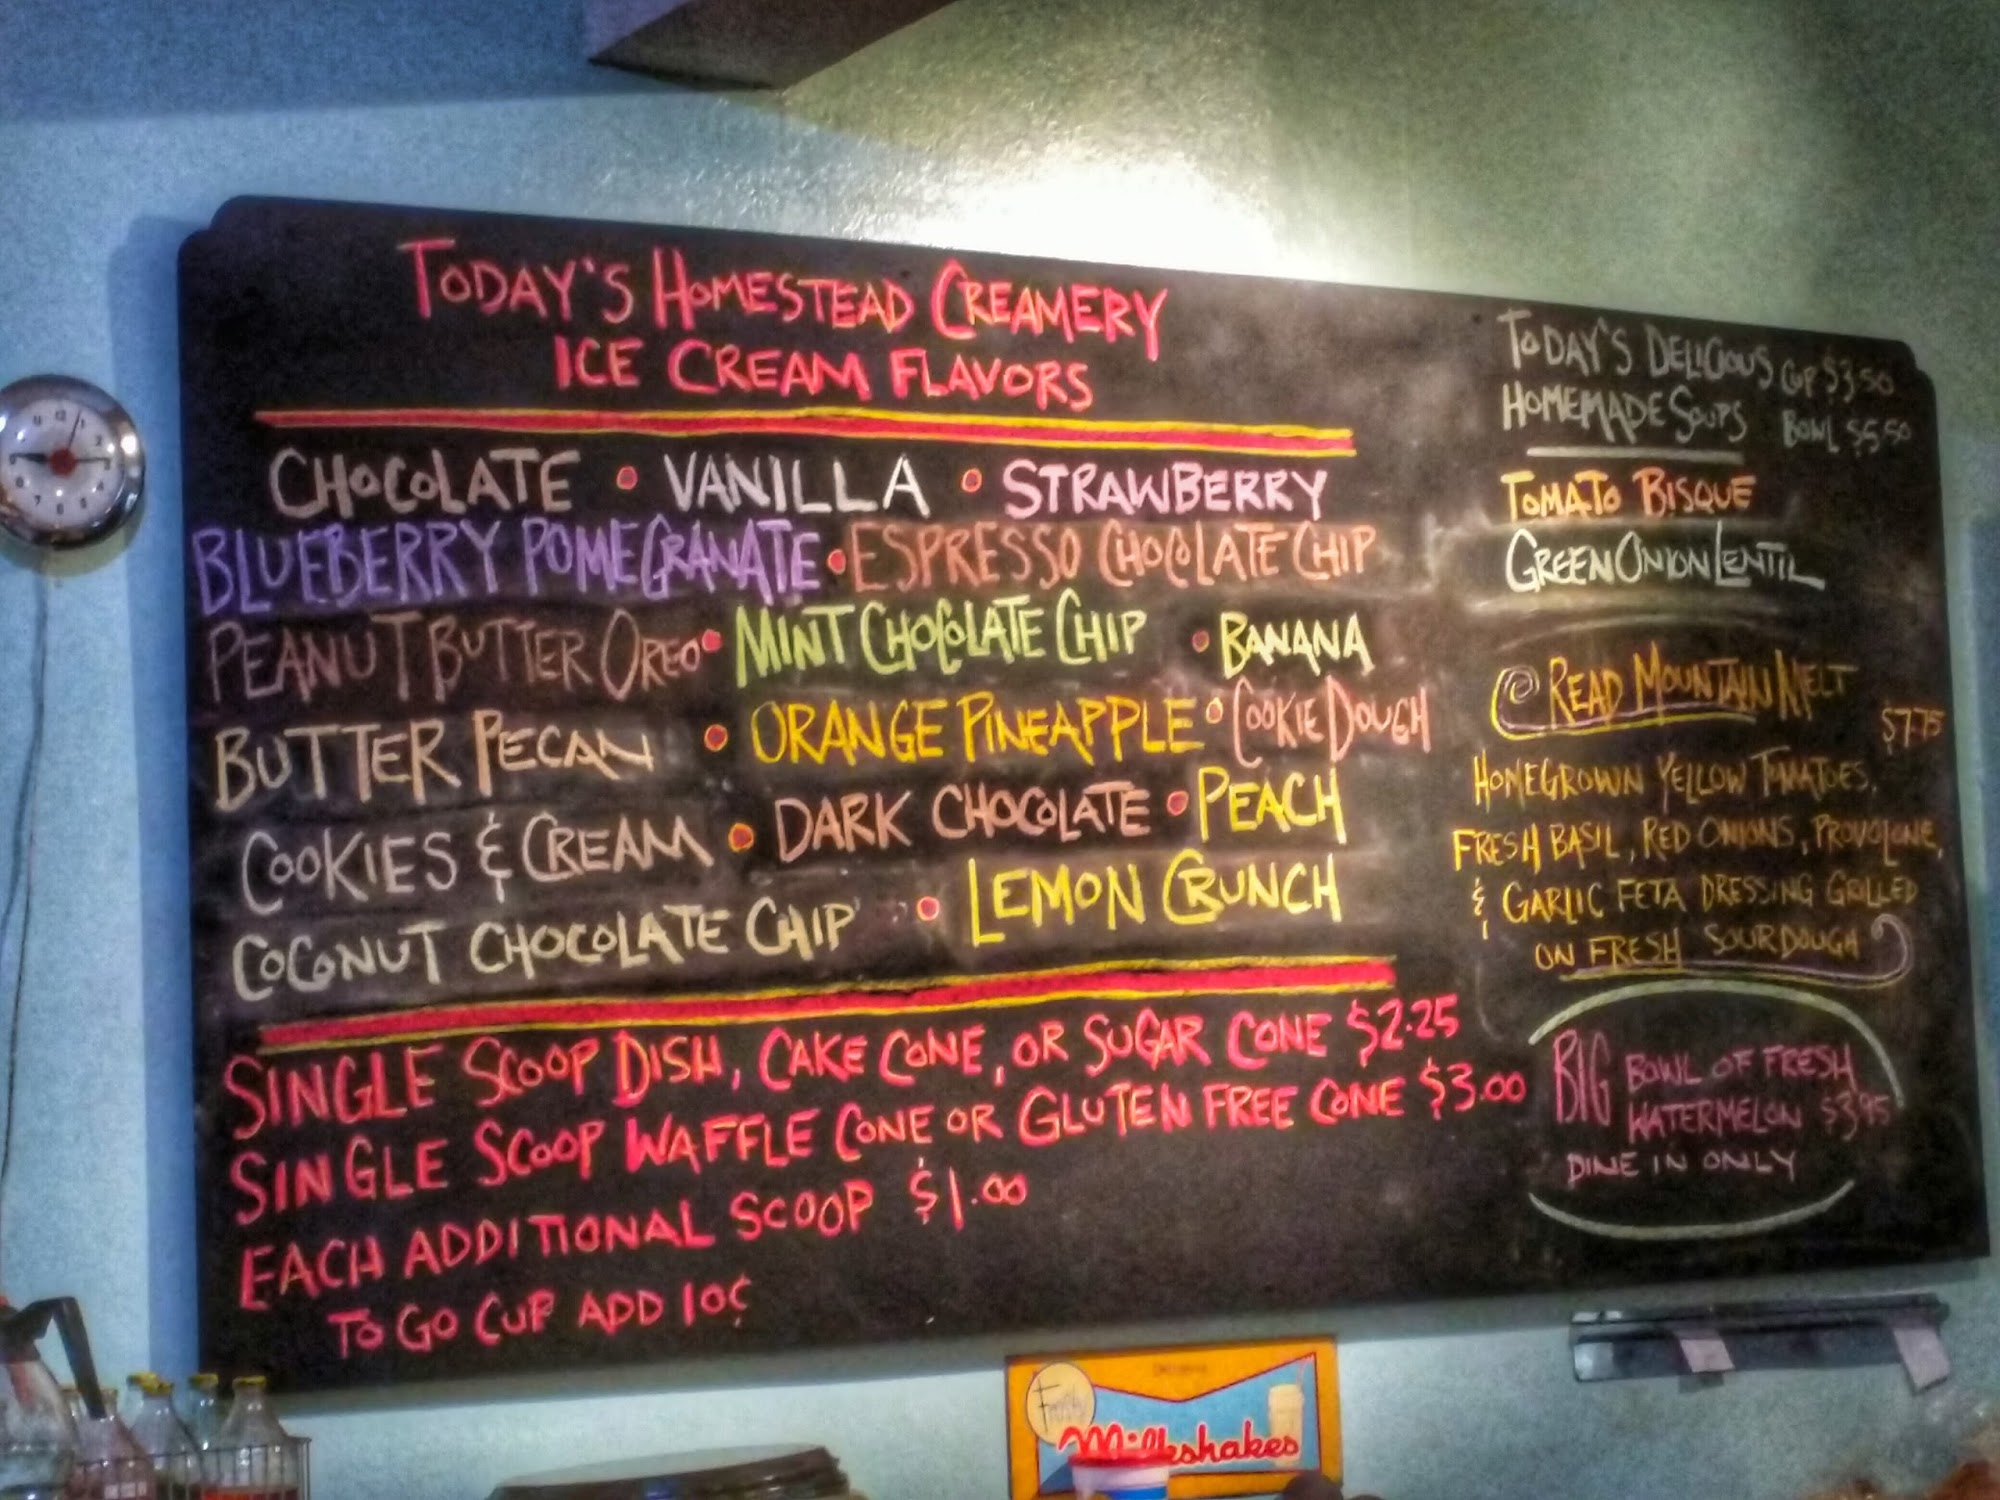 TODAY'S HOMESTEAD CREAMERY
ICE CREAM FLAVORS
CHOCOLATE • VANILLA • STRAWBERRY
BLUEBERRY POMEGRANATE • ESPRESSO CHOCOLATE CHIP
PEANUT BUTTER OREO • MINT CHOCOLATE CHIP • BANANA
BUTTER PECAN • ORANGE PINEAPPLE • COOKIE DOUGH
COOKIES & CREAM • DARK CHOCOLATE • PEACH
COCONUT CHOCOLATE CHIP • LEMON CRUNCH
SINGLE SCOOP DISH, CAKE CONE, OR SUGAR CONE $2.25
SINGLE SCOOP WAFFLE CONE OR GLUTEN FREE CONE $3.00
EACH ADDITIONAL SCOOP $1.00
TO GO CUP ADD 10¢
TODAY'S DELICIOUS CUP $3.50
HOMEMADE SOUPS BOWL $5.50
TOMATO BISQUE
GREEN ONION LENTIL
READ MOUNTAIN MELT
$7.75
HOMEGROWN YELLOW TOMATOES,
FRESH BASIL, RED ONIONS, PROVOLONE,
& GARLIC FETA DRESSING GRILLED
ON FRESH SOURDOUGH
BIG BOWL OF FRESH
WATERMELON $3.95
DINE IN ONLY
Milkshakes